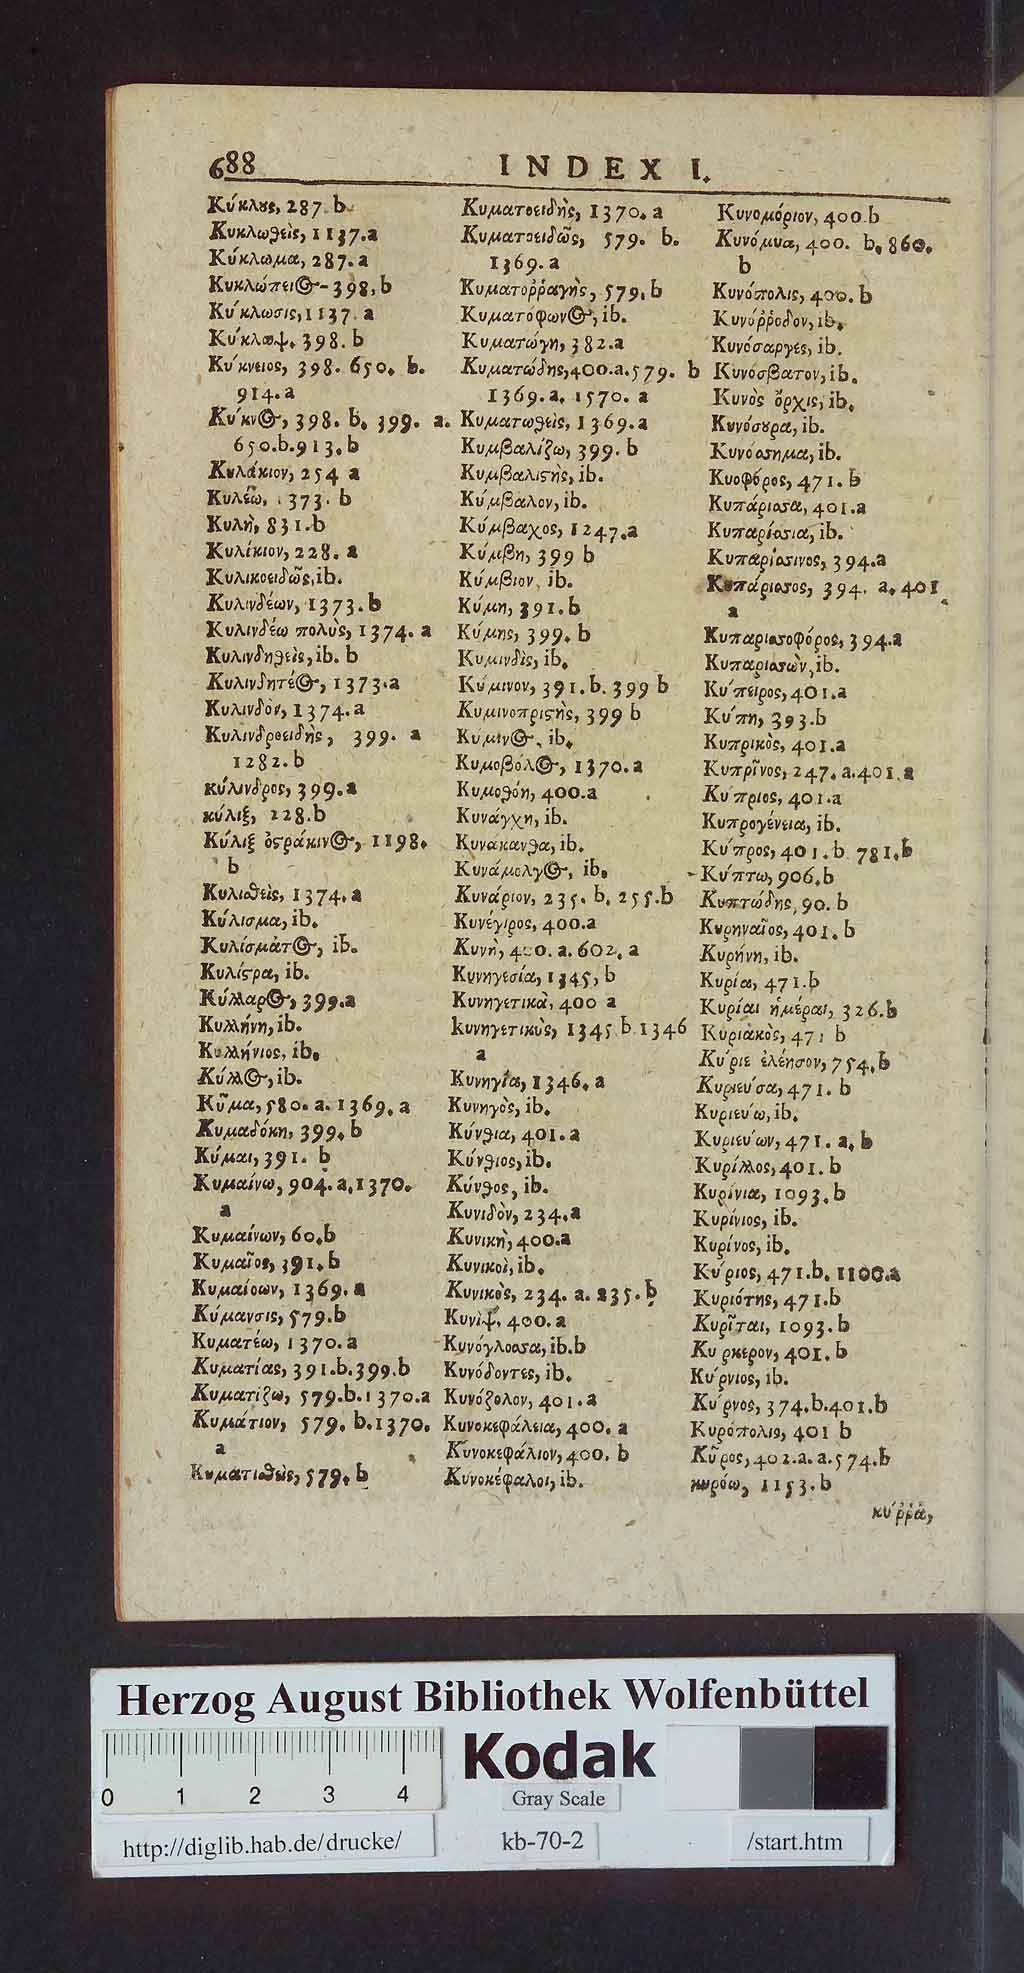 688 INDEX I.
Κύκλους, 287. b
Κυκλωθεὶς, 1137.a
Κύκλωμα, 287.a
Κυκλώπειος 398, b
Κύκλωσις, 1137. a
Κύκλωψ, 398. b
Κύκνειος, 398. 650. b.
914.a
Κύκνος, 398. b. 399. a.
650.b.913.b
Κυλάκιον, 254 a
Κυλέω, 1373. b
Κυλὴ, 831.b
Κυλίκιον, 228. a
Κυλικοειδῶς, ib.
Κυλινδέων, 1373.b
Κυλινδέω πολὺς, 1374. a
Κυλινδηθεὶς, ib. b
Κυλινδητέος, 1373.a
Κυλινδὸν, 1374.a
Κυλινδροειδὴς, 399. a
1282.b
κύλινδρος, 399.a
κύλιξ, 228.b
Κύλιξ ὀστράκινος, 1198.
b
Κυλισθεὶς, 1374.a
Κύλισμα, ib.
Κυλίσματος, ib.
Κυλίστρα, ib.
Κύλλαρος, 399.a
Κυλλήνη, ib.
Κυλλήνιος, ib.
Κύλλος, ib.
Κῦμα, 580. a. 1369. a
Κυμαδόκη, 399. b
Κύμαι, 391. b
Κυμαίνω, 904. a. 1370.
a
Κυμαίνων, 60.b
Κυμαῖος, 391. b
Κυμαίοων, 1369. a
Κύμανσις, 579.b
Κυματέω, 1370. a
Κυματίας, 391.b.399.b
Κυματίζω, 579.b.1370.a
Κυμάτιον, 579. b.1370.
a
Κυματισθεὶς, 579. b
Κυματοειδὴς, 1370. a
Κυματοειδῶς, 579. b.
1369. a
Κυματοῤῥαγὴς, 579. b
Κυματόφωνος, ib.
Κυματώγη, 382.a
Κυματώδης, 400.a.579. b
1369.a. 1570. a
Κυματωθεὶς, 1369.a
Κυμβαλίζω, 399. b
Κυμβαλιστὴς, ib.
Κύμβαλον, ib.
Κύμβαχος, 1247.a
Κύμβη, 399 b
Κύμβιον, ib.
Κύμη, 391.b
Κύμης, 399. b
Κυμινδὶς, ib.
Κύμινον, 391.b. 399 b
Κυμινοπριστὴς, 399 b
Κύμινος, ib.
Κυμοβόλος, 1370.a
Κυμοθόη, 400.a
Κυνάγχη, ib.
Κυνάκανθα, ib.
Κυνάμολγος, ib.
Κυνάριον, 235. b. 255.b
Κυνέγιρος, 400.a
Κυνὴ, 400. a. 602. a
Κυνηγεσία, 1345, b
Κυνηγετικὰ, 400 a
κυνηγετικὺς, 1345 b. 1346
a
Κυνηγία, 1346. a
Κυνηγὸς, ib.
Κύνθια, 401. a
Κύνθιος, ib.
Κύνθος, ib.
Κυνιδὸν, 234.a
Κυνικὴ, 400.a
Κυνικοὶ, ib.
Κυνικὸς, 234. a. 235. b
Κυνὶψ, 400. a
Κυνόγλωσσα, ib.b
Κυνόδοντες, ib.
Κυνόζολον, 401. a
Κυνοκεφάλεια, 400. a
Κυνοκεφάλιον, 400. b
Κυνοκέφαλοι, ib.
Κυνομόριον, 400.b
Κυνόμυα, 400. b. 860.
b
Κυνόπολις, 400. b
Κυνόῤῥοδον, ib.
Κυνόσαργες, ib.
Κυνόσβατον, ib.
Κυνὸς ὄρχις, ib.
Κυνόσουρα, ib.
Κυνόσσημα, ib.
Κυοφόρος, 471. b
Κυπάρισσα, 401.a
Κυπαρίσσια, ib.
Κυπαρίσσινος, 394.a
Κυπάρισσος, 394. a. 401
a
Κυπαρισσοφόρος, 394.a
Κυπαρισσὼν, ib.
Κύπειρος, 401.a
Κύπη, 393.b
Κυπρικὸς, 401.a
Κυπρῖνος, 247. a.401. a
Κύπριος, 401.a
Κυπρογένεια, ib.
Κύπρος, 401. b 781. b
Κύπτω, 906.b
Κυπτώδης, 90. b
Κυρηναῖος, 401. b
Κυρήνη, ib.
Κυρία, 471.b
Κυρίαι ἡμέραι, 326.b
Κυριακὸς, 471 b
Κύριε ἐλέησον, 754. b
Κυριεύσα, 471. b
Κυριεύω, ib.
Κυριεύων, 471. a. b
Κυρίλλος, 401. b
Κυρίνια, 1093. b
Κυρίνιος, ib.
Κυρίνος, ib.
Κύριος, 471.b. 1100.a
Κυριότης, 471.b
Κυρῖται, 1093. b
Κύρκερον, 401. b
Κύρνιος, ib.
Κύρνος, 374.b.401.b
Κυρόπολις, 401 b
Κῦρος, 402.a. a.574.b
κυρόω, 1153. b
κύῤῥα,
Herzog August Bibliothek Wolfenbüttel
0 1 2 3 4
Kodak
Gray Scale
http://diglib.hab.de/drucke/ kb-70-2 /start.htm